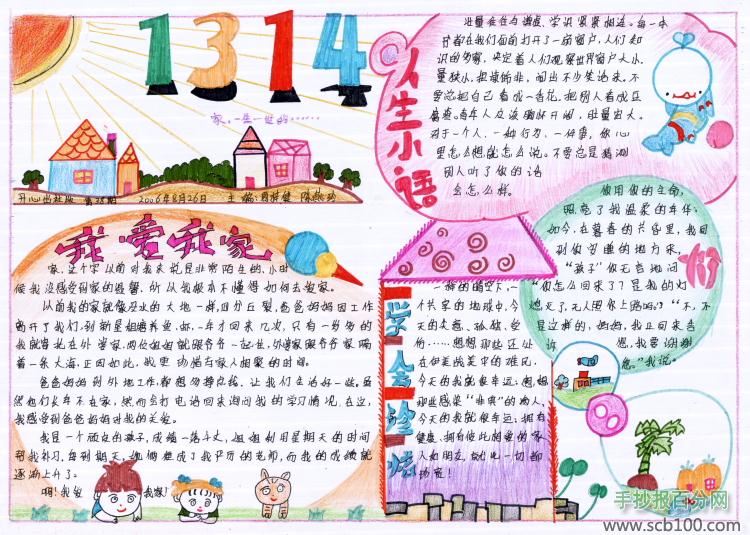 1314
家，一生一世的……
开心出社版
2006年8月26日
主编
我爱我家
家，这个字以前对我来说是非常陌生的，小时
候我没感受到家的温馨，所以我根本不懂得如何去爱家。
以前我的家就像
的大地一样，四分五裂，爸爸妈妈因工作
离开了我们，到新
一年才回来几次，只有一岁多的
我就寄托在外婆家，两位姐姐就跟爷爷一起住，外婆家跟爷爷家隔
着一条大海，正因如此，我更
家人相聚的时间。
爸爸妈妈到外地工作，都想多挣点钱，让我们生活好一些。虽
然他们长年不在家，然而会打电话回来询问我的学习情况，在这，
我感受到爸爸妈妈对我的关爱。
我是一个顽皮的孩子，成绩一落千丈，姐姐利用星期天的时间
帮我补习，每到期天，她俩便成了我严厉的老师，而我的成绩就
逐渐上升了。
啊！我爱
我家！
人生小语
肚量会往与谦虚、学识紧紧相连。每一本
书都在我们面前打开了一扇窗户，人们知
识的多寡，决定着人们观察世界窗户大小。
量狭小，
闹出不少笑话来。不
要总把自己看成一杏花，把别人看成豆
腐渣。青年人应该胸怀开阔，肚量出大。
对于一个人，一种行为，一件事，你心
里怎么想就怎么说。不要总是猜测
别人听了你的话
会怎么样。
你用你的生命，
照亮了我温柔的年华；
如今，在暮春的共吾里，我回
到做客睡的地方来，
“孩子”你无言地问
“你怎么回来了？是我的灯
熄灭了，无人照你上路吗？”“不，不
是这样的，妈妈，我正回来告
诉
您，我要谢谢
您。”我说。
学会珍惜
一样的晴空下，一
个共享的地球中，今
天的哀愁、孤独、悲
伤……想想那些还处
在伊美战美中的难民，
今天的我就很幸运；想想
那些感染“非典”的病人，
今天的我就很幸运；拥有
健康、拥有彼此相爱的家
人和朋友，
一切都
珍惜！
手抄报百分网
www.scb100.com